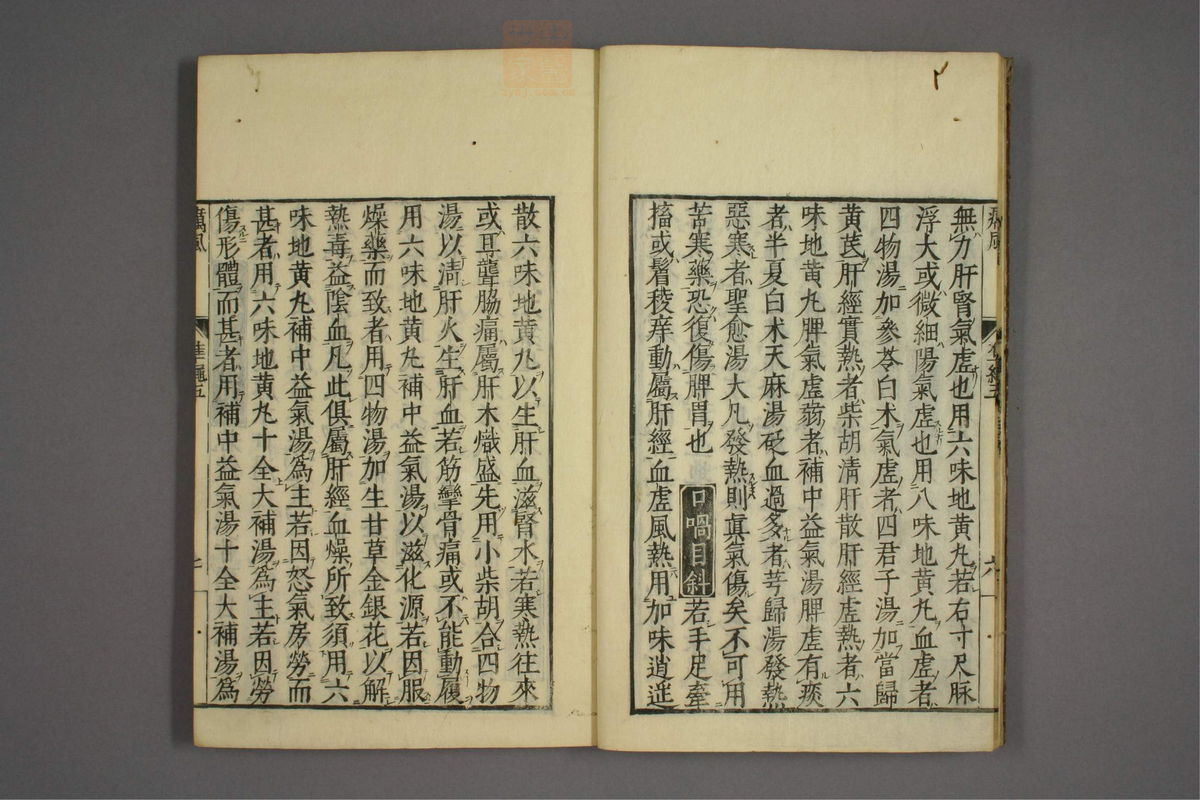 無力肝腎氣虛也用六味地黃丸若右寸尺脉
浮大或微細陽氣虛也用八味地黃丸血虛者
四物湯加參苓白术氣虛者四君子湯加當歸
黃芪肝經實熱者柴胡清肝散肝經虛熱者六
味地黃丸脾氣虛弱者補中益氣湯脾虛有痰
者半夏白术天麻湯砭血過多者芎歸湯發熱
惡寒者聖愈湯大凡發熱則眞氣傷矣不可用
苦寒藥恐復傷脾胃也 口喎目斜 若手足牽
搐或眉稜痒動屬肝經血虛風熱用加味逍遥
散六味地黃丸以生肝血滋腎水若寒熱往來
或耳聾脇痛屬肝木熾盛先用小柴胡合四物
湯以淸肝火生肝血若筋攣骨痛或不能動履
用六味地黃丸補中益氣湯以滋化源若因服
燥藥而致者用四物湯加生甘草金銀花以解
熱毒益陰血凡此俱屬肝經血燥所致須用六
味地黃丸補中益氣湯爲主若因怒氣房勞而
甚者用六味地黃丸十全大補湯爲主若因勞
傷形體而甚者用補中益氣湯十全大補湯爲